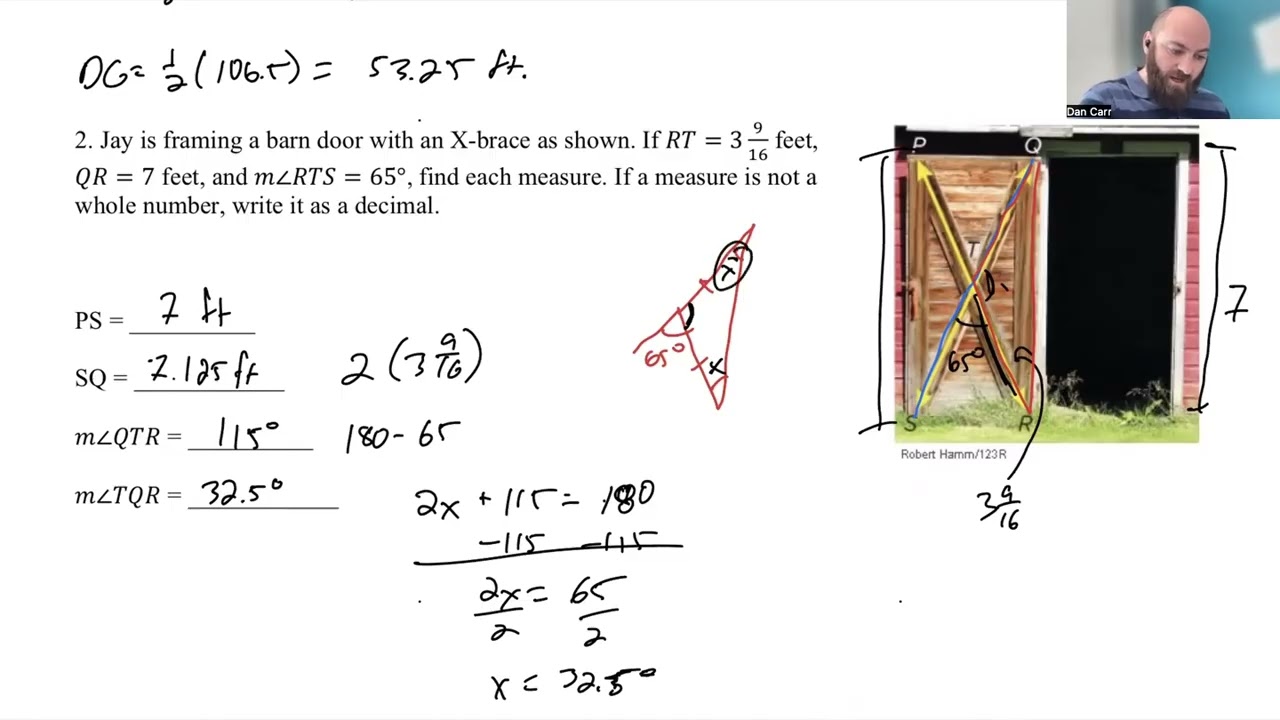 DG = 1/2 (106.5) = 53.25 ft.
Dan Carr
2. Jay is framing a barn door with an X-brace as shown. If RT = 3 9/16 feet,
QR = 7 feet, and m∠RTS = 65°, find each measure. If a measure is not a
whole number, write it as a decimal.
PS = 7 ft
SQ = 7.125 ft 2 (3 9/16)
m∠QTR = 115° 180 - 65
m∠TQR = 32.5°
2x + 115 = 180
-115 -115
2x = 65
2 2
x = 32.5°
65°
x
x
P Q
T
7
65°
S R
Robert Hamm/123R
3 9/16